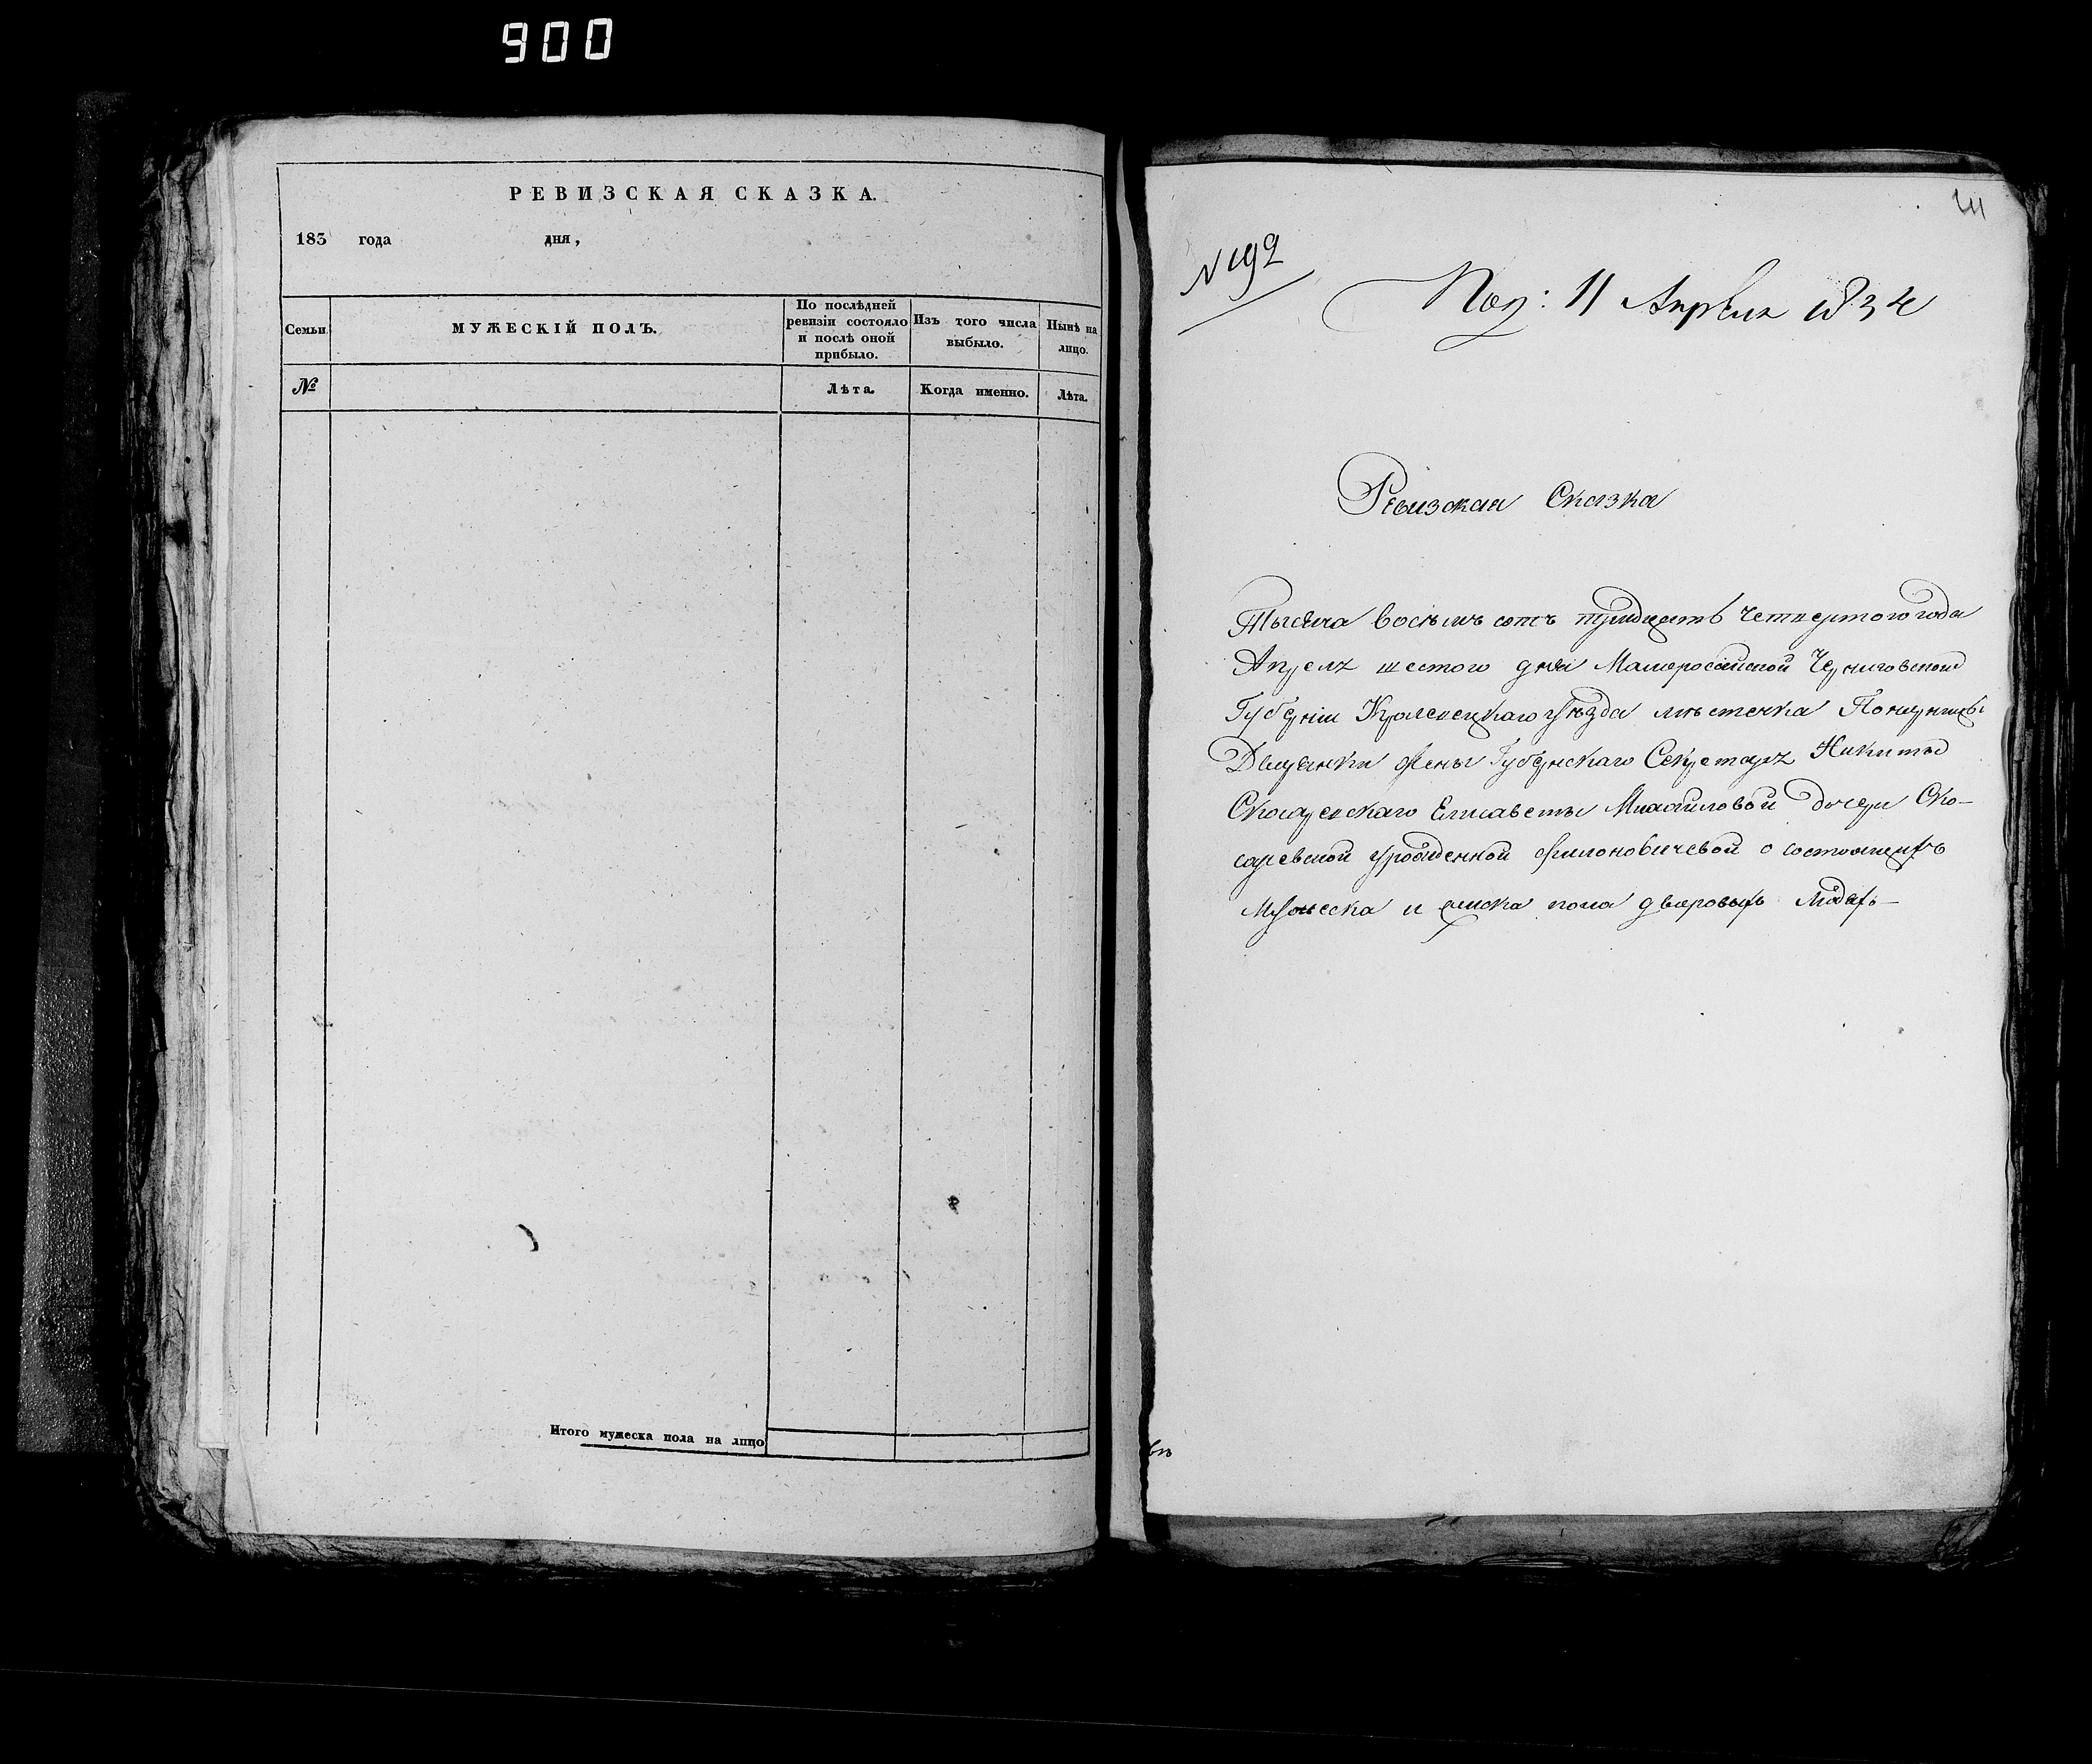 900
РЕВИЗСКАЯ СКАЗКА.
183 года дня,
Семьи
МУЖЕСКІЙ ПОЛЪ.
По послѣдней
ревизіи состояло
и послѣ оной
прибыло.
Изъ того числа
выбыло.
Нынѣ на
лицо.
№
Лѣта.
Когда именно.
Лѣта.
Итого мужеска пола на лицо
N 192
Пол: 11 Апрѣля 1834
Ревизская Сказка
Тысяча восѣмъ сотъ тридцать четвертого года
Апреля шестого дня Малоросійской Черниговской
Губерніи Кролевецкаго уѣзда мѣстечка
Дворянки жены Губернскаго Секретаря Никиты
Скосаревскаго Елисаветы Михайловой дочери Ско-
саревской урожденной Филоновичевой о состоящихъ
Мужеска и женска пола дворовыхъ людяхъ-